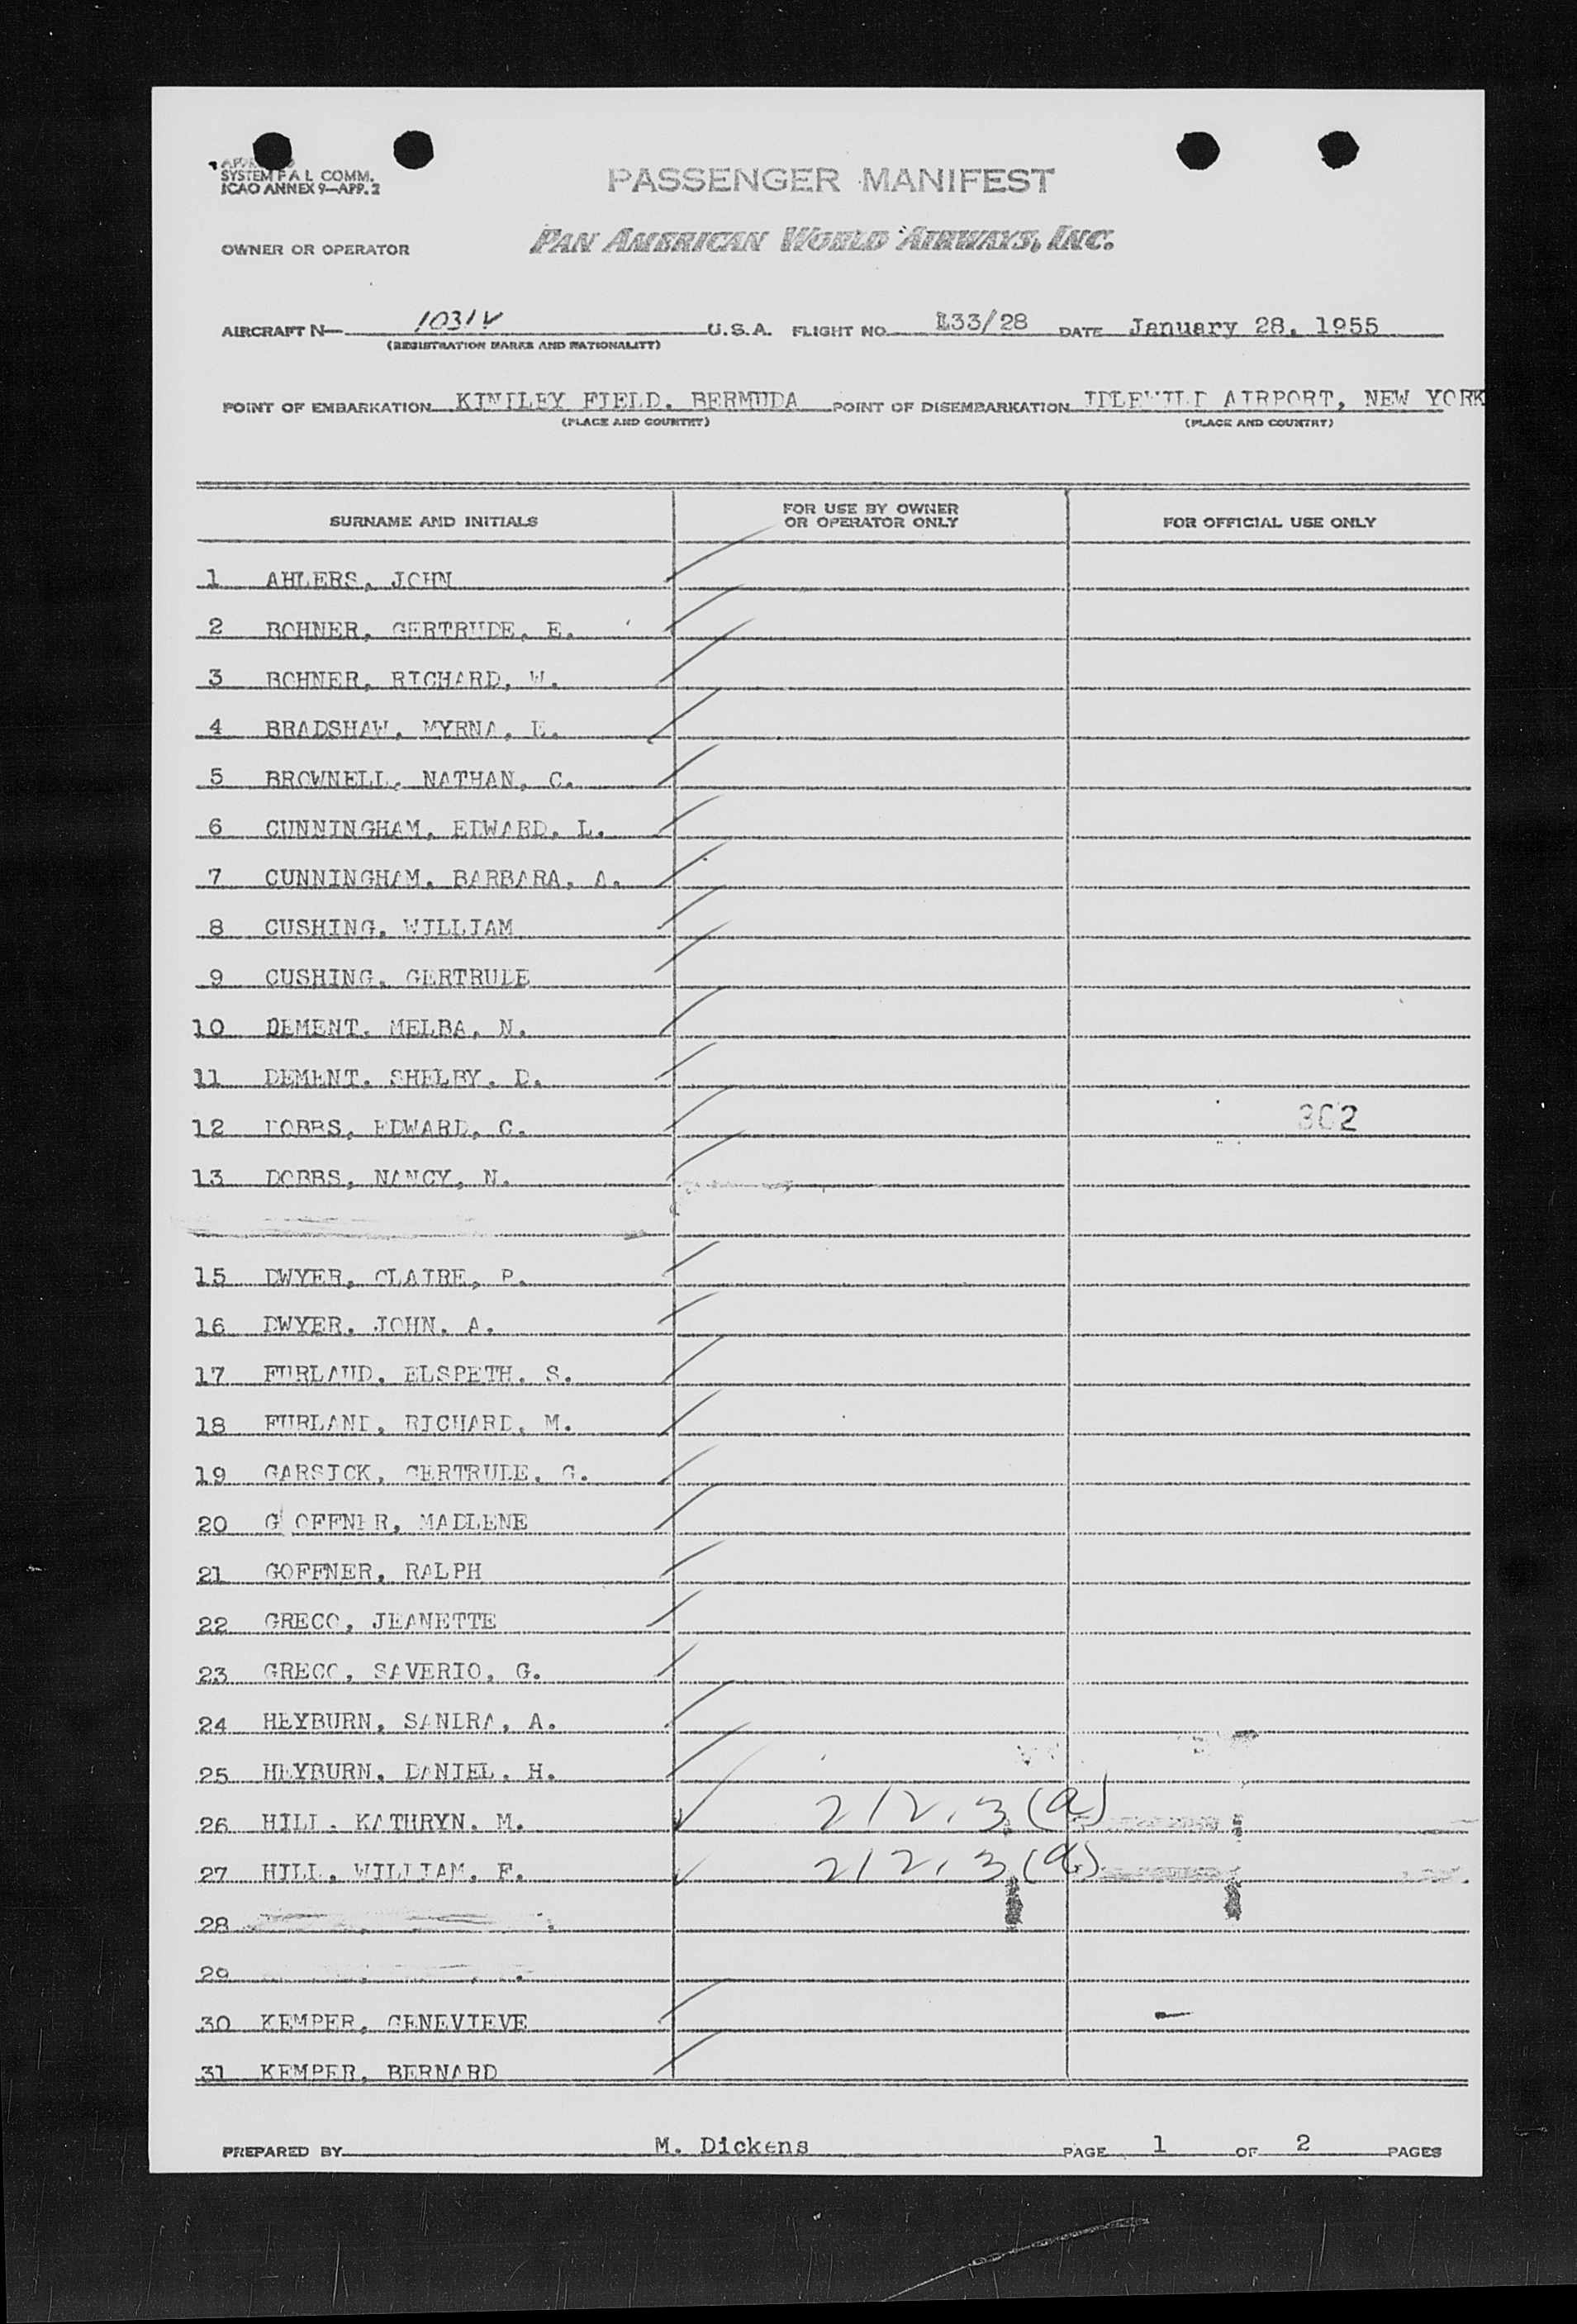 SYSTEM F A L COMM.
ICAO ANNEX 9—APP. 2
PASSENGER MANIFEST
OWNER OR OPERATOR
PAN AMERICAN WORLD AIRWAYS, INC.
AIRCRAFT N— 1031V U.S.A. FLIGHT NO. 133/28 DATE January 28, 1955
(REGISTRATION MARKS AND NATIONALITY)
POINT OF EMBARKATION KINDLEY FIELD, BERMUDA POINT OF DISEMBARKATION IDLEWILD AIRPORT, NEW YORK
(PLACE AND COUNTRY) (PLACE AND COUNTRY)
SURNAME AND INITIALS FOR USE BY OWNER OR OPERATOR ONLY FOR OFFICIAL USE ONLY
1 AHLERS, JOHN
2 BOHNER, GERTRUDE, E.
3 BOHNER, RICHARD, W.
4 BRADSHAW, MYRNA, E.
5 BROWNELL, NATHAN, C.
6 CUNNINGHAM, EDWARD, L.
7 CUNNINGHAM, BARBARA, A.
8 CUSHING, WILLIAM
9 CUSHING, GERTRUDE
10 DEMENT, MELBA, N.
11 DEMENT, SHELBY, D.
12 DOBBS, EDWARD, C. 302
13 DOBBS, NANCY, N.
15 DWYER, CLAIRE, P.
16 DWYER, JOHN, A.
17 FURLAUD, ELSPETH, S.
18 FURLAND, RICHARD, M.
19 GARSICK, GERTRUDE, G.
20 G OFFNER, MADLENE
21 GOFFNER, RALPH
22 GRECO, JEANETTE
23 GRECO, SAVERIO, G.
24 HEYBURN, SANDRA, A.
25 HEYBURN, DANIEL, H.
26 HILL, KATHRYN, M. 212.3(a)
27 HILL, WILLIAM, F. 212.3(a)
28
29
30 KEMPER, GENEVIEVE
31 KEMPER, BERNARD
PREPARED BY M. Dickens PAGE 1 OF 2 PAGES